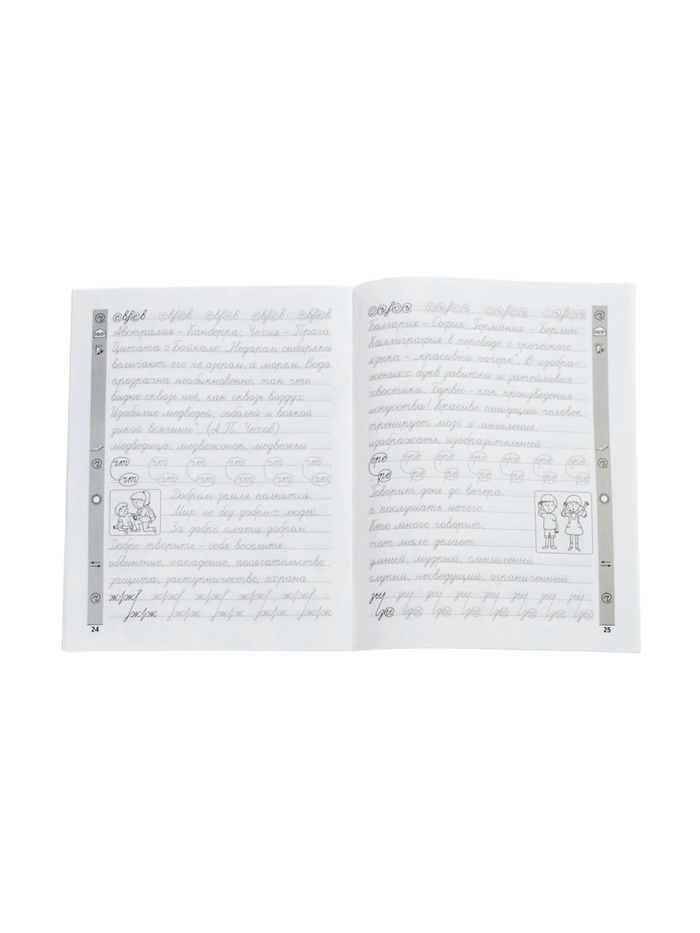 Австралия - Канберра; Чехия - Прага
Цитата о Байкале: „Недаром сибиряки
величают его не озером, а морем. Вода
прозрачна необыкновенно, так что
видно сквозь неё, как сквозь воздух.
Изобилие медведей, соболей и всякой
дикой всячины". (А.П. Чехов)
медведица, медвежонок, медвежьи
чт чт чт чт чт чт
чт чт чт чт чт чт
Добром земля полнится.
Мир не без добрых людей.
За добро плати добром.
Добро творить - себя веселить.
обвинение, нападение, посягательство
защита, заступничество, охрана
24
Болгария - София; Германия - Берлин
Каллиграфия в переводе с греческого
языка - „красивый почерк". В изобра-
жениях букв завитки и затейливые
хвостики. Буквы - как произведения
искусства! Красиво пишущий человек
тренирует мозг и мышление.
изображать, изобразительный
Говорит день до вечера,
а послушать нечего.
Кто много говорит,
тот мало делает.
умный, мудрый, смышлёный
глупый, несведущий, ограниченный
25